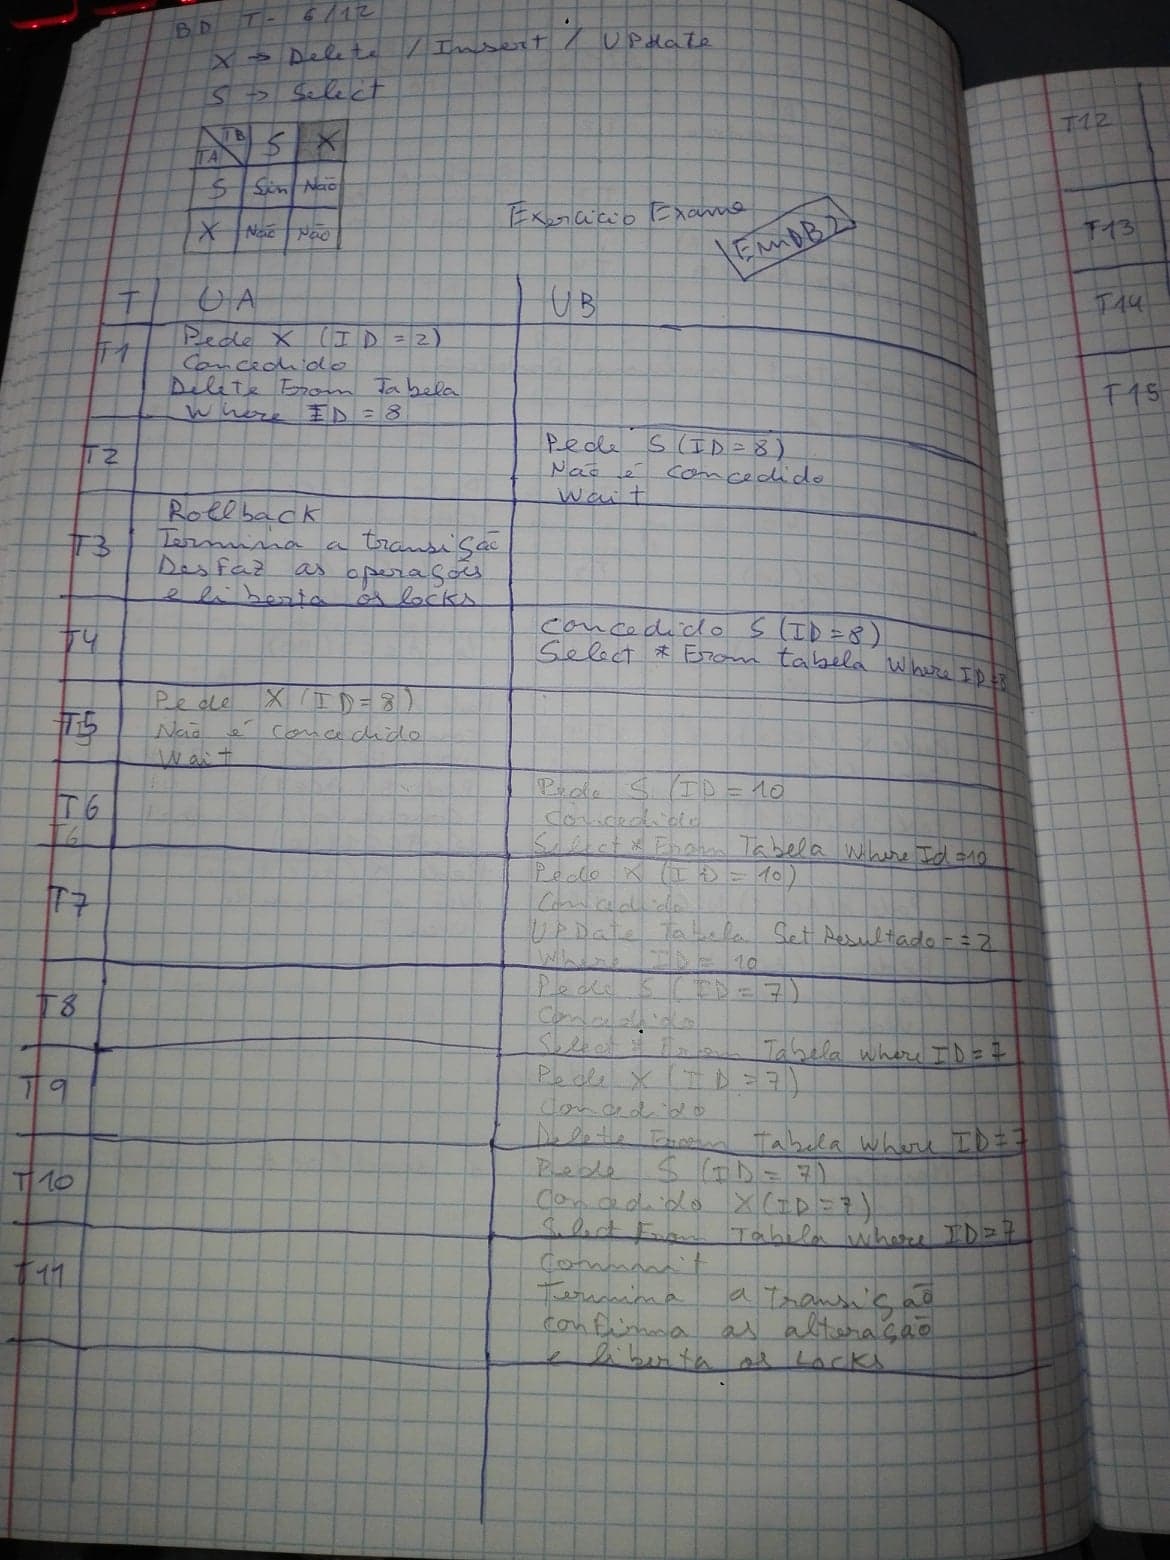 BD T- 6/12
X → Delete / Insert / UPdate
S → Select
TB S X
TA
S Sim Não
X Não Não
Exercicio Exame
EmDB2
T UA UB
T1 Pede X (ID=2)
Concedido
Delete From Tabela
Where ID = 8
T2 Pede S (ID=8)
Não é concedido
Wait
T3 Rollback
Termina a transição
Desfaz as operações
e liberta os locks
T4 Concedido S (ID=8)
Select * From tabela Where ID=8
T5 Pede X (ID=8)
Não é Concedido
Wait
T6 Pede S (ID=10
Concedido
T6 Select * From Tabela Where Id=10
T7 Pede X (ID=10)
Concedido
UPDate Tabela Set Resultado-=2
Where ID= 10
T8 Pede S (ID=7)
Concedido
Select * From Tabela where ID=7
T9 Pede X (ID=7)
Concedido
Delete From Tabela Where ID=7
T10 Pede S (ID=7)
Concedido X(ID=7)
Select From Tabela where ID=7
T11 Commit
Termina a transição
confirma as alteração
e liberta os Locks
T12
T13
T14
T15